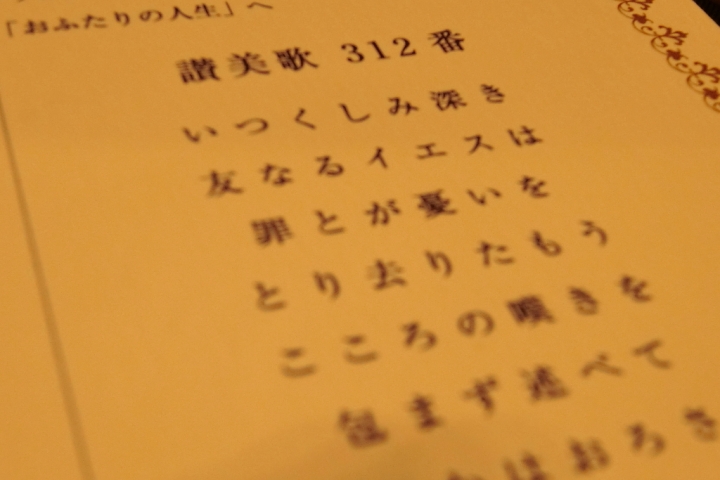 「おふたりの人生」へ
讃美歌 312 番
いつくしみ深き
友なるイエスは
罪とが憂いを
とり去りたもう
こころの嘆きを
包まず述べて
はおろさ